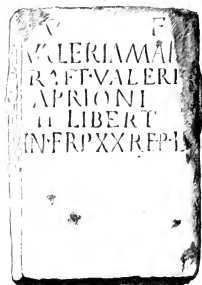 V F
VALERIA MAR
RA ET·VALERI
APRIONI
LIBERT
IN·FR·P XX R·F·P·L